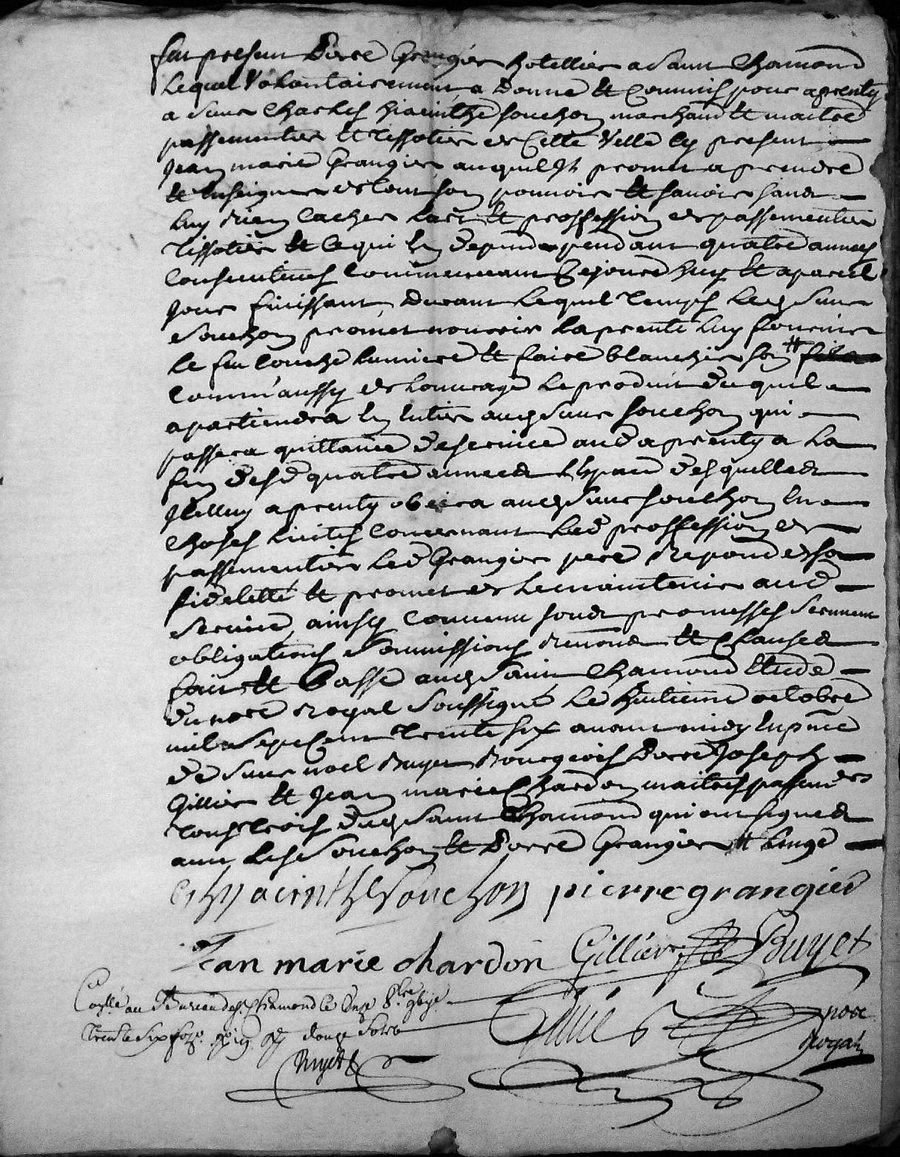 fut present Pierre Grangier hotellier a Saint Chamond
Lequel Volontairement a Donné et Commis pour aprenty
a Sieur Charles hiacinthe souchon marchand et maitre
passementier et tissotier en Cette Ville Cy present
Jean marie Grangier auquel Il promet aprendre
et Enseigner de tout son pouvoir et savoir sans
Luy Rien Cacher Lart et proffession de passementier
tissotier et Ce qui En depend pendant quatre annees
Consecutives Commenceant Cejourdhuy et a pareil
Jour finissant, Durant Lequel temps Led Sieur
Souchon promet nourrir Laprenti Luy fournir
Le feu Couche Lumiere et faire blanchir son #
Comm'aussy de Louvrage Le produit duquel
apartiendra En Entier aud Sieur Souchon qui
passera quittance de service aud aprenty a La
fin desd quatre années desquelles
Icelluy aprenty obeira aud Sieur Souchon En
Choses Licites Concernant Lad proffession de
passementier Led Grangier pere Repond de sa
fidelitté et promet de Le maintenir aud
Service, ainsy Convenu sous promesses Serment
obligations Soumissions Renons et Clauses
fait et Passé aud Saint Chamond Etude
du nore Royal soussigné Le huitieme octobre
mil sept cent trente six avant midy En pnce
de Sieur noel Buyet Bourgeois Pierre Joseph
Gillier et Jean marie Chardon maitres passemers
tous trois dud Saint Chamond qui ont signes
avec Led Souchon et Pierre Grangier # Linge
Ch hyacinthe Souchon pierre grangier
Jean marie chardon Gillier Buyet
Conlé au Bureau de St Chamond le Onze 8bre
trente Six douze sols
nore
Royal
Buyet